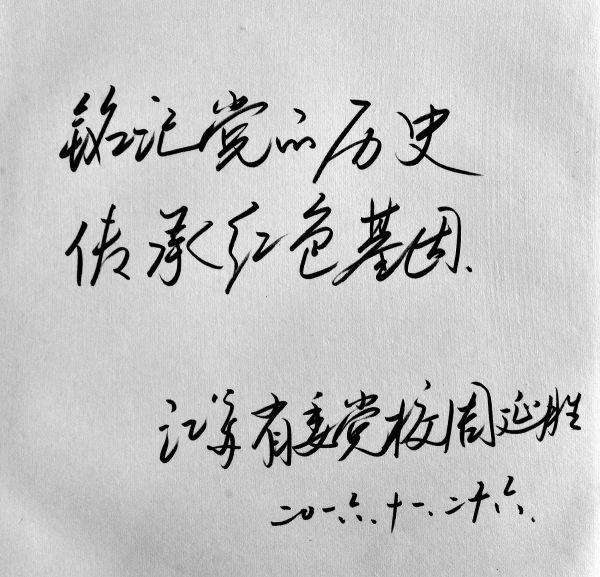 铭记党的历史
传承红色基因.
江苏省委党校周延胜
二〇一六.十一.二十六.